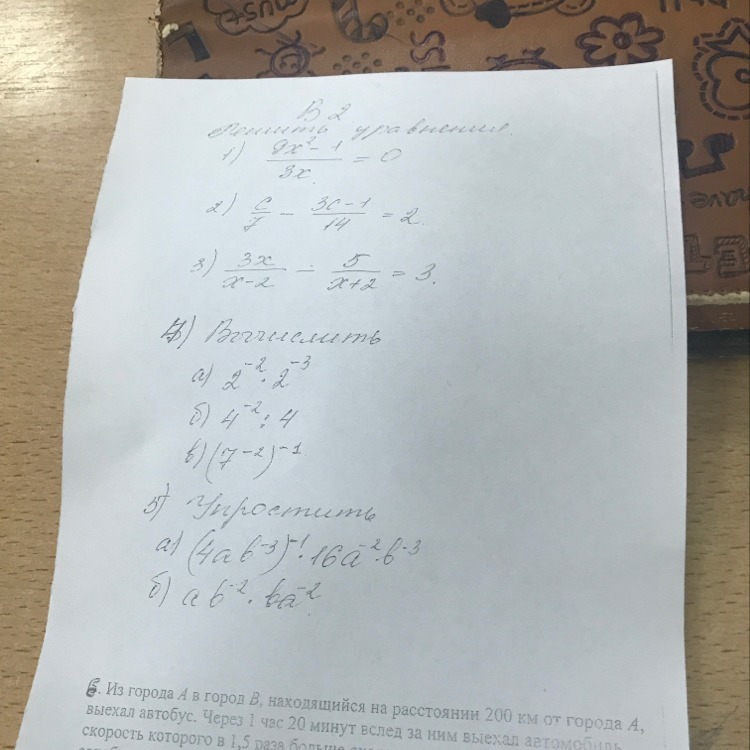 must
В 2
Решить уравнения.
1) (9x² - 1)/(3x) = 0
2) c/7 - (3c-1)/14 = 2.
3) 3x/(x-2) - 5/(x+2) = 3.
4) Вычислить
а) 2⁻² · 2⁻³
б) 4⁻² : 4
в) (7⁻²)⁻¹
5) Упростить
а) (4ab⁻³)⁻¹ · 16a⁻² · b⁻³
б) ab⁻² · ba⁻²
6. Из города А в город В, находящийся на расстоянии 200 км от города А,
выехал автобус. Через 1 час 20 минут вслед за ним выехал автомобиль,
скорость которого в 1,5 раза больше